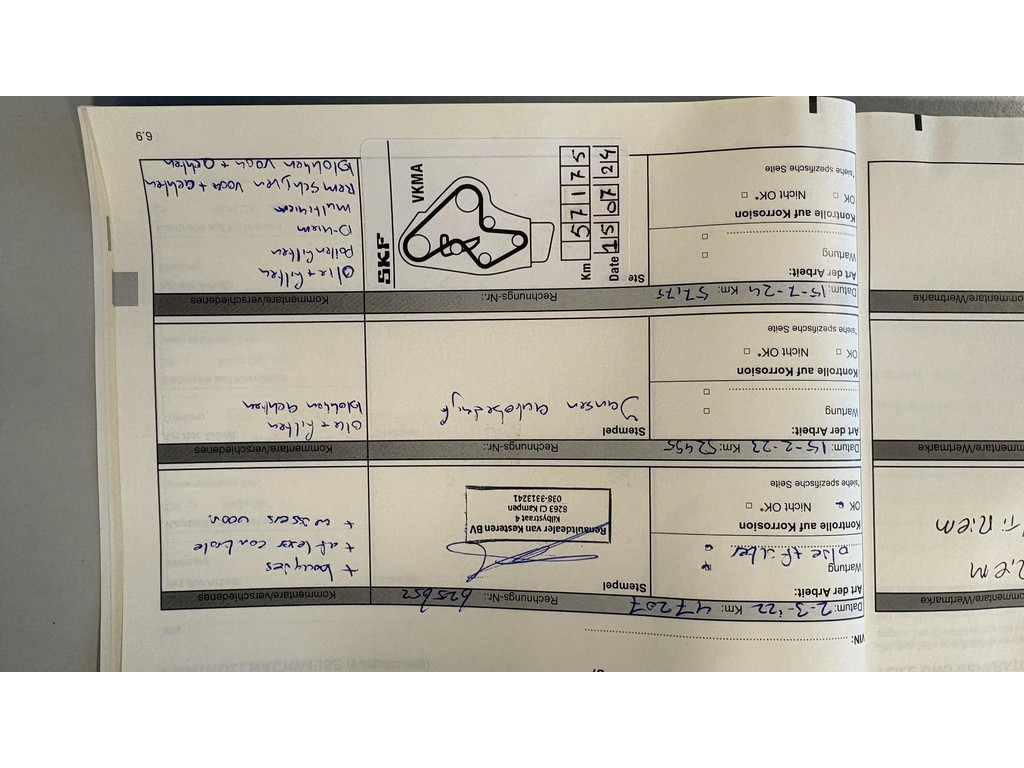 VIN:
Datum: 2-3-'22 Km: 47207 Rechnungs-Nr.: 625652 Kommentare/verschiedenes
Art der Arbeit:
Wartung
olie + filter
Kontrolle auf Korrosion
OK Nicht OK*
*siehe spezifische Seite
Stempel
Renaultdealer van Kesteren BV
Kilbystraat 4
8263 CJ Kampen
038-3313241
+ bougies
+ aflever controle
+ wissers voor.
Datum: 15-2-23 Km: 52455 Rechnungs-Nr.: Kommentare/verschiedenes
Art der Arbeit:
Wartung
Kontrolle auf Korrosion
OK Nicht OK*
*siehe spezifische Seite
Stempel
Jansen autobedrijf
olie + filter
blokken achter
Datum: 15-7-24 Km: 57175 Rechnungs-Nr.: Kommentare/verschiedenes
Art der Arbeit:
Wartung
Kontrolle auf Korrosion
OK Nicht OK*
*siehe spezifische Seite
Ste
SKF
VKMA
Km 57175
Date 15 07 24
olie + filter
pollenfilter
D-riem
multiriem
Remschijven voor + achter
blokken voor + achter
6.9
Kommentare/Wertmarke